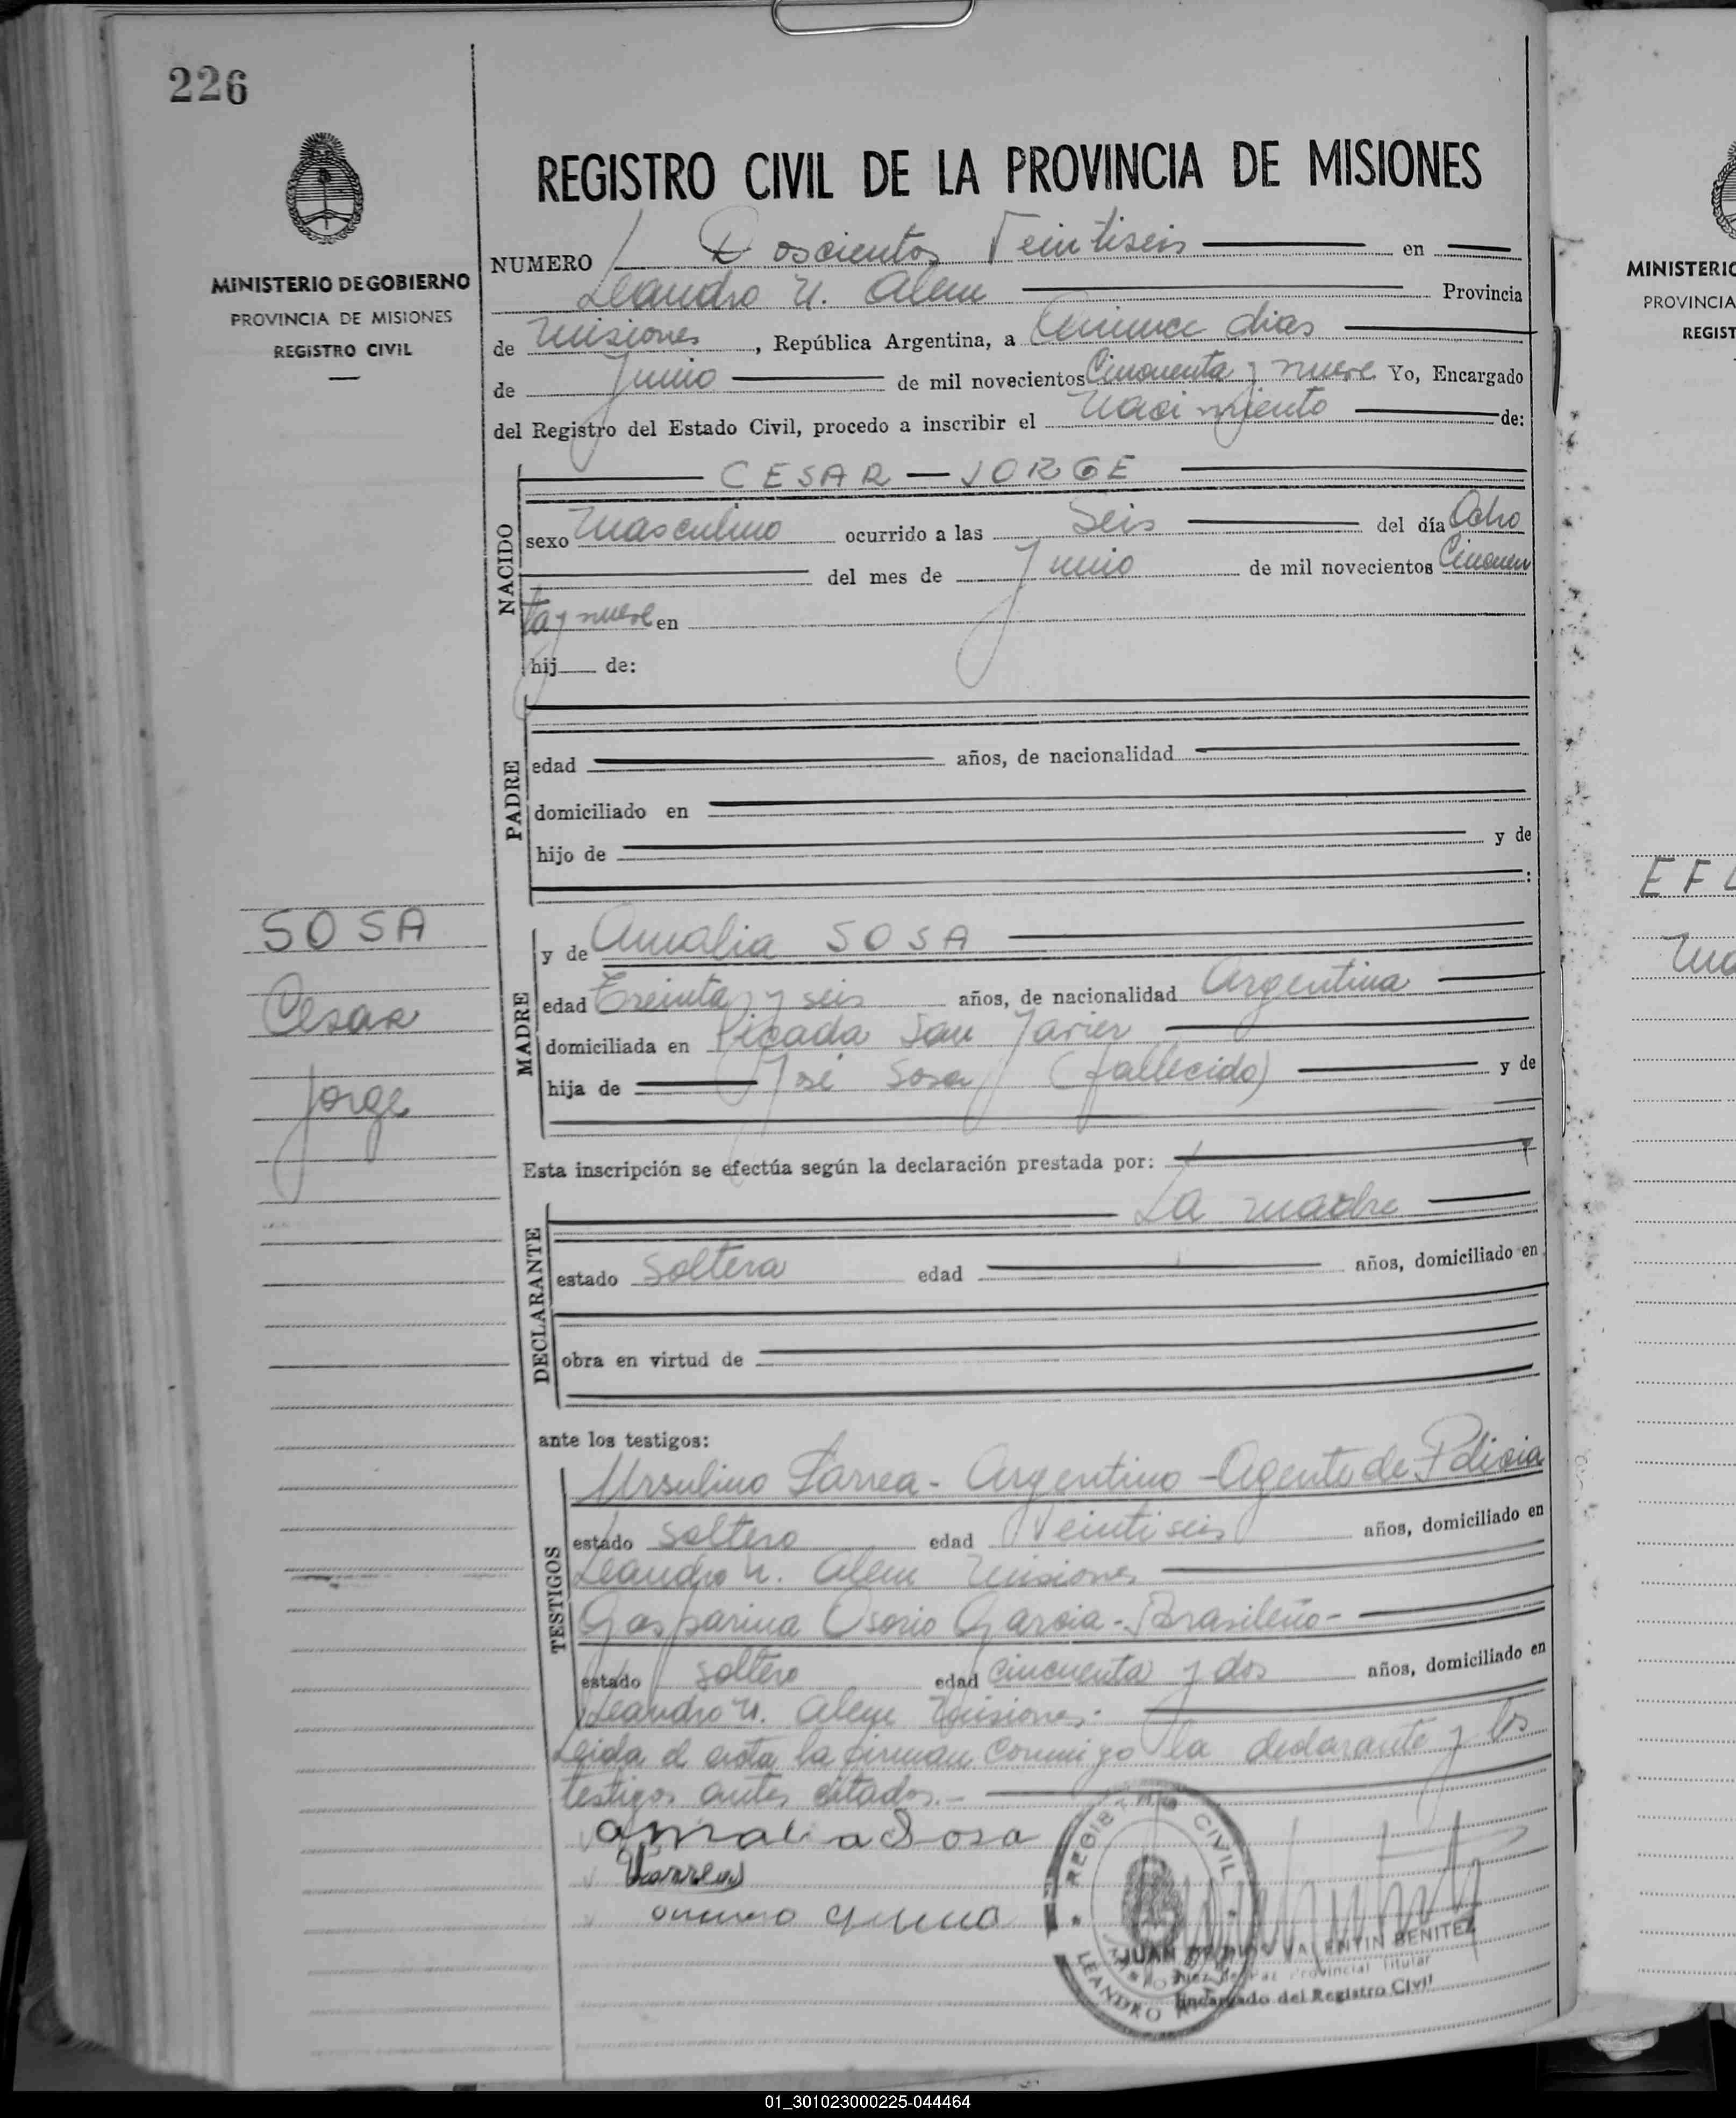 226
REGISTRO CIVIL DE LA PROVINCIA DE MISIONES
MINISTERIO DE GOBIERNO
PROVINCIA DE MISIONES
REGISTRO CIVIL
NUMERO Doscientos Veintiseis en
Leandro N. Alem Provincia
de Misiones, República Argentina, a Quince dias
de Junio de mil novecientos Cincuenta y nueve Yo, Encargado
del Registro del Estado Civil, procedo a inscribir el Nacimiento de:
NACIDO
CESAR — JORGE
sexo Masculino ocurrido a las Seis del día Ocho
del mes de Junio de mil novecientos Cincuen
ta y nueve en
hij de:
PADRE
edad años, de nacionalidad
domiciliado en
hijo de y de
:
SOSA
Cesar
Jorge
MADRE
y de Amalia SOSA
edad Treinta y seis años, de nacionalidad Argentina
domiciliada en Picada San Javier
hija de José Sosa (fallecido) y de
Esta inscripción se efectúa según la declaración prestada por:
DECLARANTE
La madre
estado Soltera edad años, domiciliado en
obra en virtud de
ante los testigos:
TESTIGOS
Ursulino Larrea - Argentino - Agente de Policia
estado soltero edad Veintiseis años, domiciliado en
Leandro N. Alem Misiones
Gasparina Osorio Garcia - Brasileño -
estado soltero edad cincuenta y dos años, domiciliado en
Leandro N. Alem Misiones.
Leida el acta la firman conmigo la declarante y los
testigos antes citados. -
amalia Sosa
REGISTRO CIVIL
LEANDRO N.
JUAN DE DIOS VALENTIN BENITEZ
Juez de Paz Provincial Titular
Encargado del Registro Civil
MINISTERIO
PROVINCIA
REGIST
01_301023000225-044464